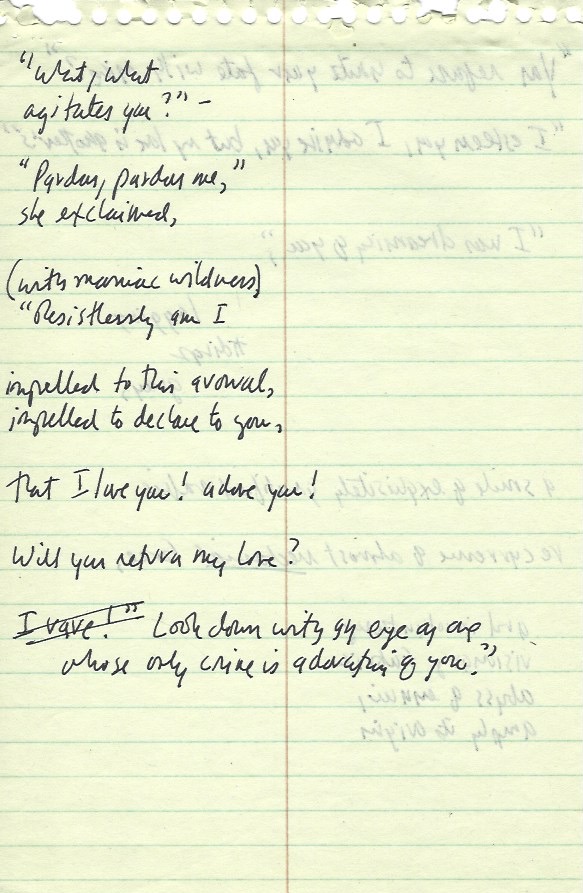 "What, what
agitates you?" –
"Pardon, pardon me,"
she exclaimed,
(with maniac wildness)
"Resistlessly am I
impelled to this avowal,
impelled to declare to you,
that I love you! adore you!
Will you return my love?
I rave!" Look down with eye on one
whose only crime is adoration of you."